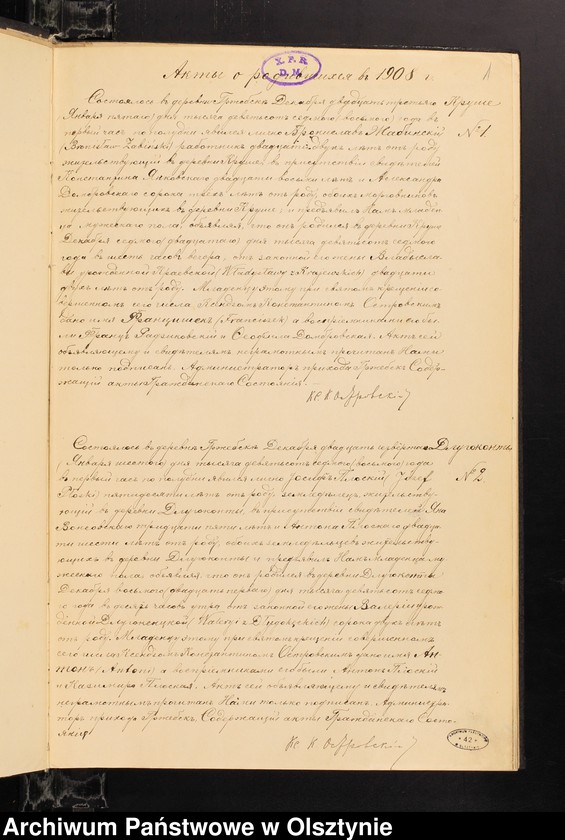 X.P.R
D.M.
Акты о родившихся в 1908 г.
1
Состоялось в деревни Гржебск Декабря двадцать третьяго Круше
Января пятаго дня тысяча девятьсот седьмаго (восьмаго) года в № 1
первый час по полудни явился лично Бронислав Жабинский
(Bronisław Żabiński) работник двадцати двух лет от роду
жительствующий в деревни Круше в присутствии свидетелей
Константина двадцати восьми лет и Александра
Домбровскаго сорока трех лет от роду, обоих
жительствующих в деревни Круше, и предъявил Нам младенца
мужескаго пола, объявляя, что он родился в деревни Круше
Декабря седьмаго (двадцатаго) дня тысяча девятьсот седьмаго
года в шесть часов вечера, от законной его жены Владысла-
вы, урожденной (Władysławy z) двадцати
двух лет от роду. Младенцу этому при святом крещении со-
вершенном сего числа Ксендзом Константином Островским
дано имя Францишек (Franciszek) а восприемниками его бы-
ли Франц и Теофила Домбровская. Акт сей
объявляющему и свидетелям неграмотным прочитан Нами
только подписан. Администратор прихода Гржебск Содер-
жащий акты Гражданскаго Состояния.
Кс. К Островский
Состоялось в деревни Гржебск Декабря двадцать четвертаго Длугоконты
(Января шестаго) дня тысяча девятьсот седьмаго (восьмаго) года
в первый час по полудни явился лично Иосиф Плоский (Józef № 2
Płoski) пятидесяти лет от роду, земледелец жительству-
ющий в деревни Длугоконты, в присутствии свидетелей Яна
тридцати пяти лет и Антона Плоскаго двадца-
ти шести лет от роду, обоих земледельцев жительству-
ющих в деревни Длугоконты и предъявил Нам младенца му-
жескаго пола объявляя, что он родился в деревни Длугоконты
Декабря восьмаго (двадцать перваго) дня тысяча девятьсот седьма-
го года в десять часов утра, от законной его жены Валерии урож-
денной (Walerji z) сорока двух лет
от роду. Младенцу этому при святом крещении совершенном
сего числа Ксендзом Константином Островским дано имя Ан-
тон (Antoni) а восприемниками его были Антон Плоский
и Казимира Плоская. Акт сей объявляющему и свидетелям
неграмотным прочитан Нами только подписан. Админис­тра-
тор прихода Гржебск Содержащий акты Гражданскаго Состо-
яния
Кс К Островский
42
Archiwum Państwowe w Olsztynie